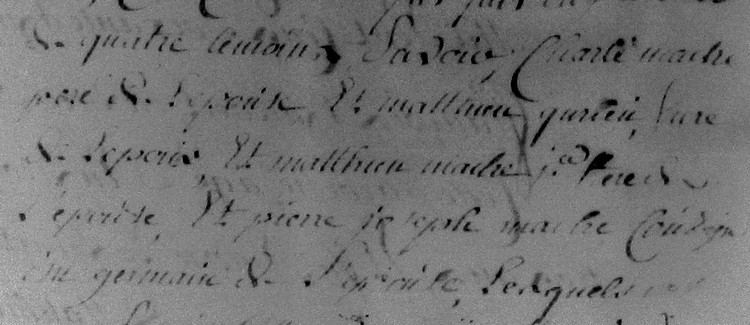 de quatre temoins, Savoir, Charle madre
pere de Lepouse Et matthieu
de Lepoux, Et matthieu madre frere de
L'epouse, Et pierre joseph madre Cousin
germain de L'epouse, Lesquels